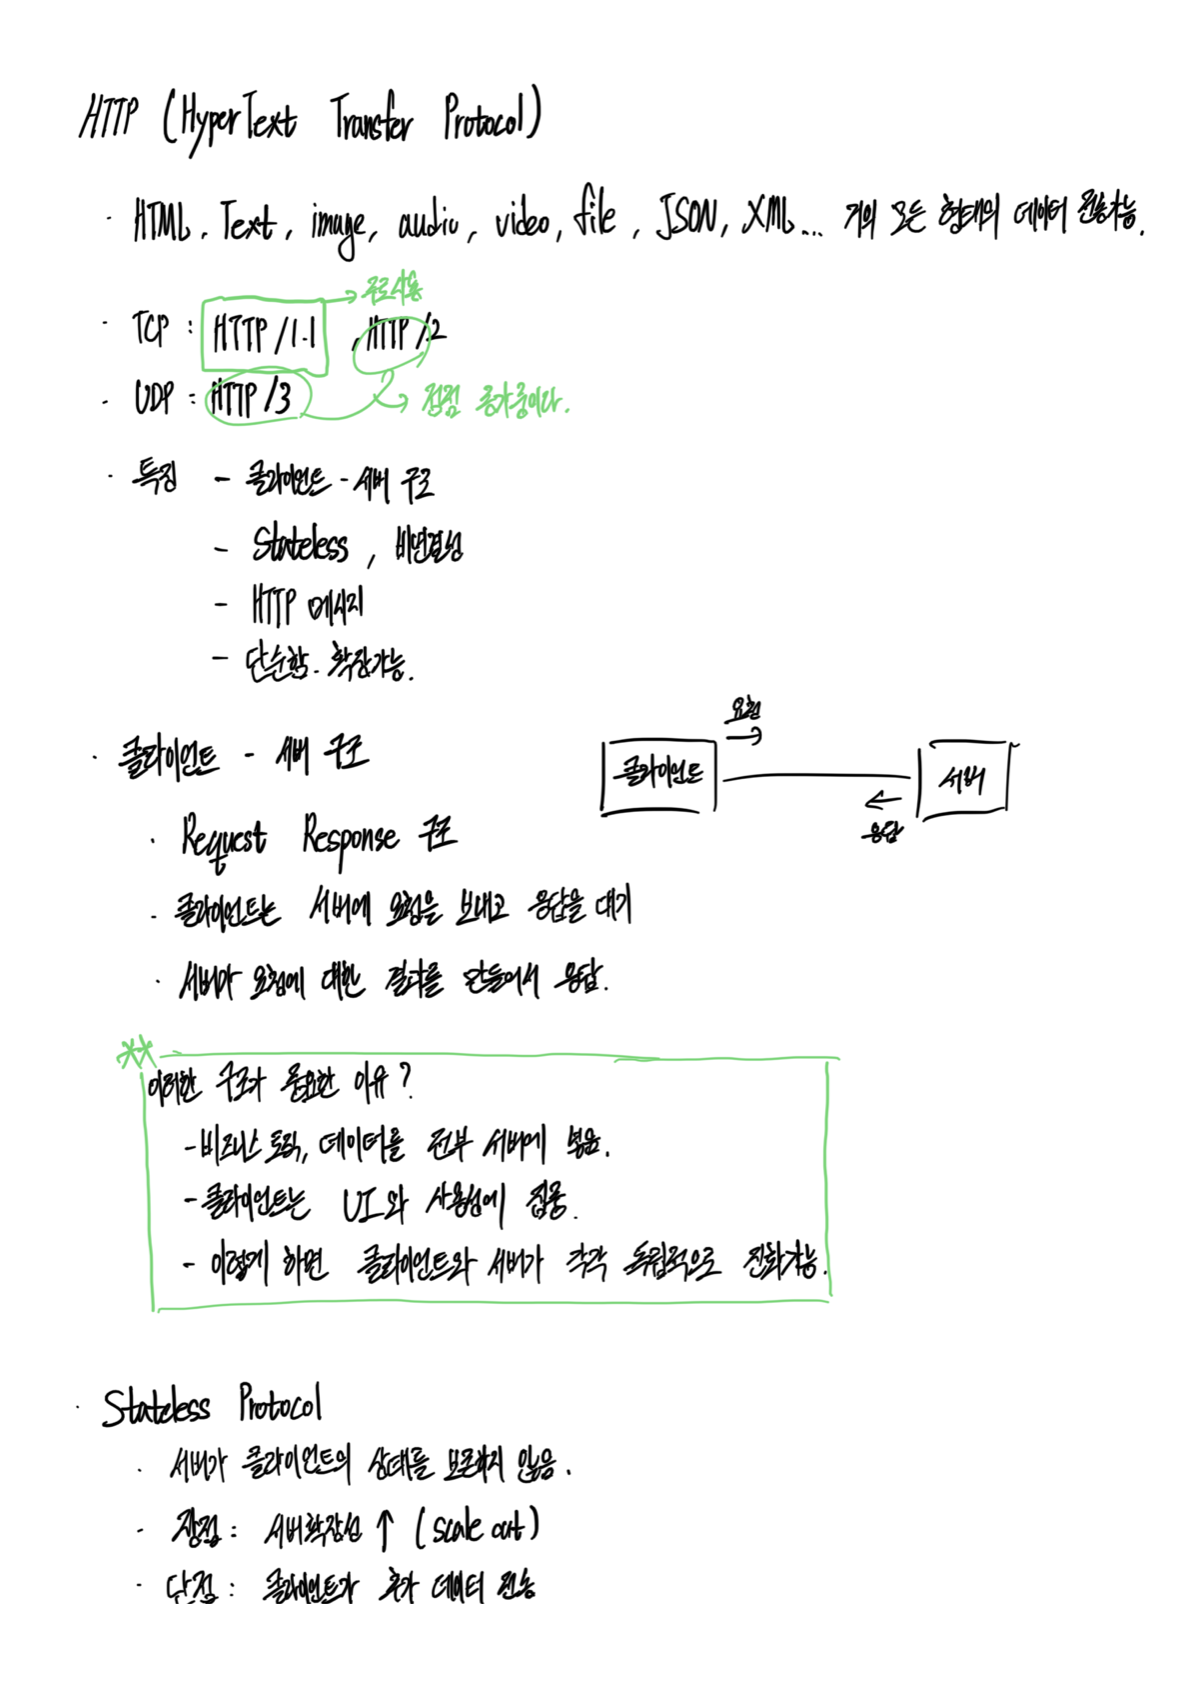 HTTP (HyperText Transfer Protocol)
· HTML, Text, image, audio, video, file, JSON, XML... 거의 모든 형태의 데이터 전송가능.
→ 주로사용
· TCP : HTTP/1.1 , HTTP/2
· UDP : HTTP/3 → 점점 증가중이다.
· 특징 - 클라이언트 - 서버 구조
- Stateless , 비연결성
- HTTP 메시지
- 단순함. 확장가능.
· 클라이언트 - 서버 구조
요청 →
클라이언트 서버
← 응답
· Request Response 구조
· 클라이언트는 서버에 요청을 보내고 응답을 대기
· 서버가 요청에 대한 결과를 만들어서 응답.
**
이러한 구조가 중요한 이유?
- 비즈니스 로직, 데이터를 전부 서버에 넣음.
- 클라이언트는 UI와 사용성에 집중.
- 이렇게 하면 클라이언트와 서버가 각각 독립적으로 진화가능.
· Stateless Protocol
· 서버가 클라이언트의 상태를 보존하지 않음.
· 장점 : 서버확장성 ↑ (scale out)
· 단점 : 클라이언트가 추가 데이터 전송